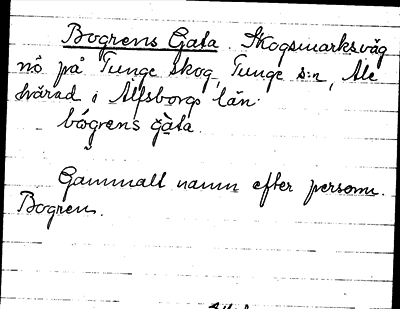 Bogrens Gata. Skogsmarksväg
nö på Tunge skog, Tunge s:n, Ale
härad i Älfsborgs län.
bógrens gàta.
Gammalt namn efter person.
Bogren.